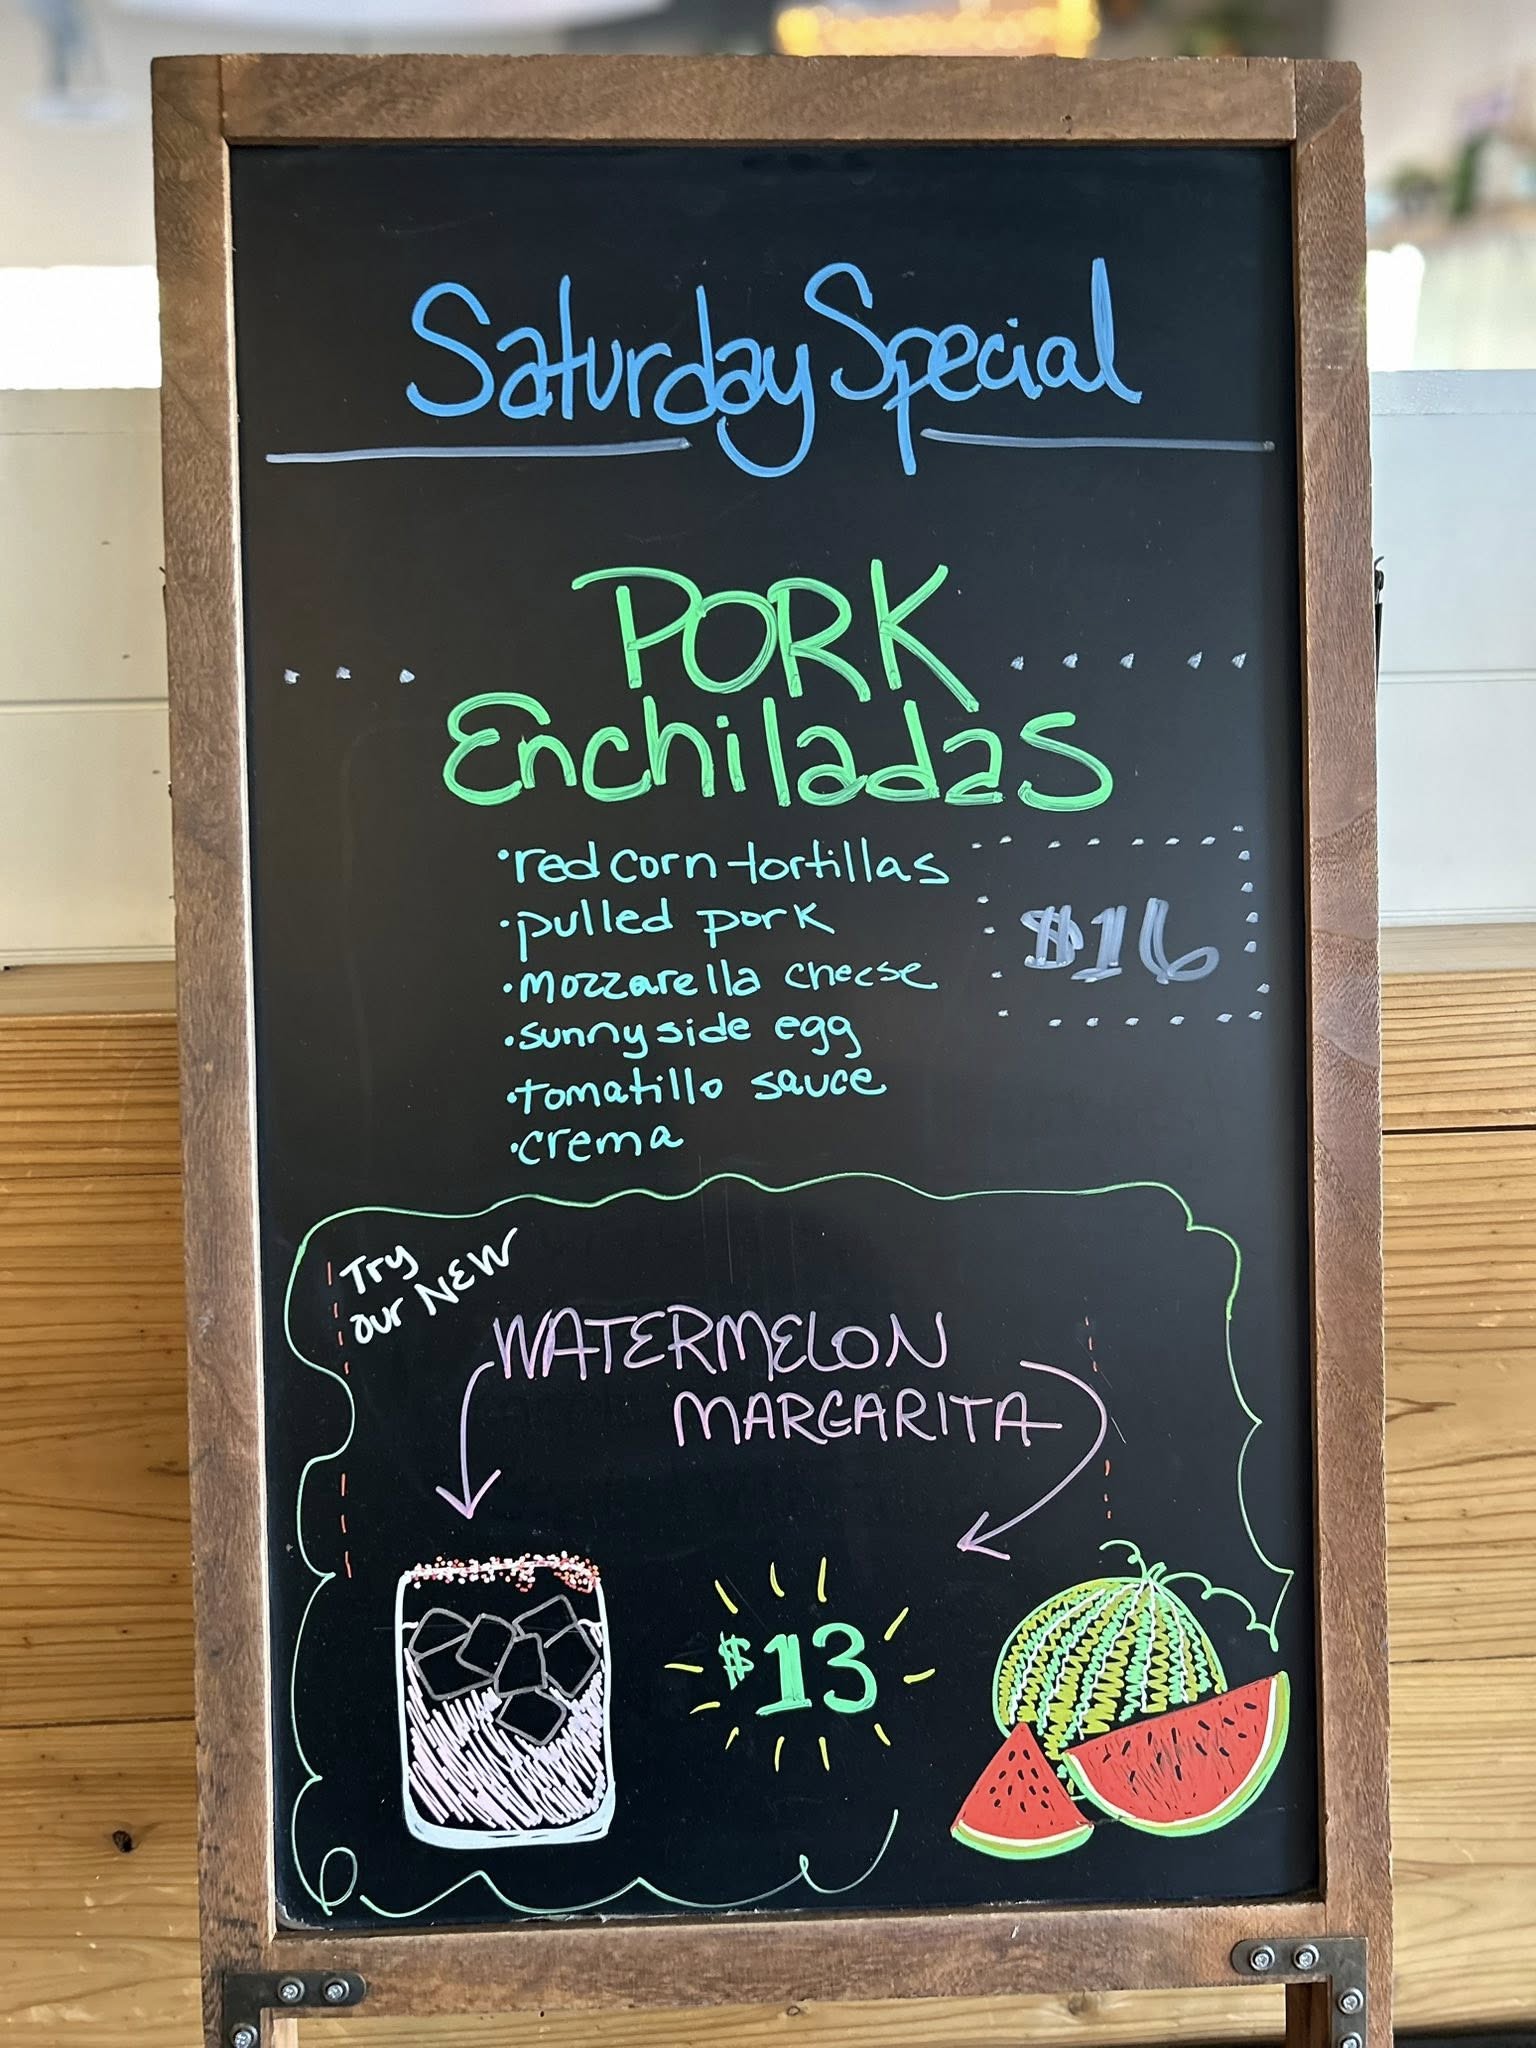 Saturday Special
PORK
Enchiladas
·red corn tortillas
·pulled pork
·mozzarella cheese
·sunny side egg
·tomatillo sauce
·crema
$16
Try
our NEW
WATERMELON
MARGARITA
$13